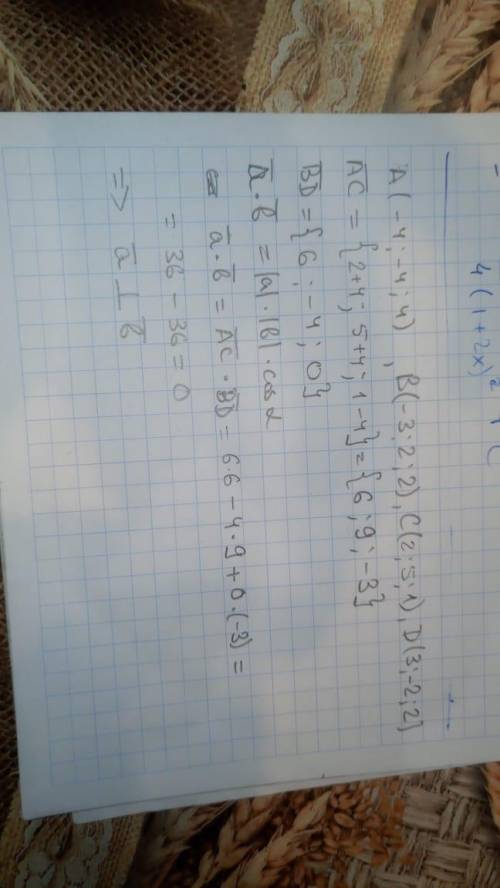 4(1+2x)²
A(-4;-4;4), B(-3;2;2), C(2;5;1), D(3;-2;2)
A̅C̅ = {2+4; 5+4; 1-4} = {6; 9; -3}
B̅D̅ = {6; -4; 0}
a̅·b̅ = |a|·|b|·cos α
a̅·b̅ = A̅C̅·B̅D̅ = 6·6 - 4·9 + 0·(-3) =
= 36 - 36 = 0
=> a̅ ⊥ b̅